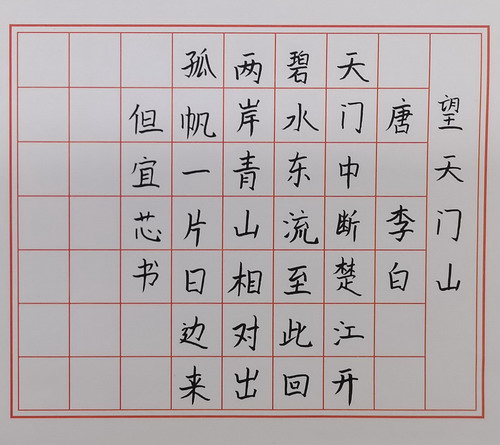 望天门山
唐李白
天门中断楚江开
碧水东流至此回
两岸青山相对出
孤帆一片日边来
但宜芯书